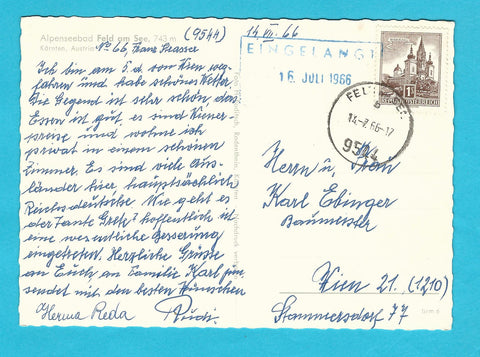 Alpenseebad Feld am See, 743 m (9544) 14. VII. 66
Kärnten, Austria No 66, Franz Strasser
Ich bin am 5. d. von Wien weg-
gefahren und habe schönes Wetter
Die Gegend ist sehr schön, das
Essen ist gut, es sind Wiener-
preise und wohne ich
privat in einem schönen
Zimmer. Es sind viele Aus-
länder hier hauptsächlich
Reichsdeutsche. Wie geht es
der Tante Grete? hoffentlich ist
eine wesentliche Besserung
eingetreten. Herzliche Grüsse
an Euch an Familie Karl jun.
sendet mit den besten Wünschen
Herma Reda Rudi.
EINGELANGT
16. JULI 1966
FELD
14.-7.66-17
b
9544
REPUBLIK ÖSTERREICH
Herrn u. Frau
Karl Ebinger
Baumeister
Wien 21. (1210)
Stammersdorf 77